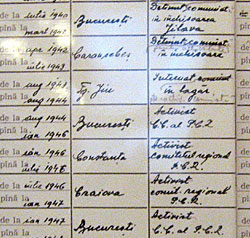 de la iulie 1940 București Deținut comunist,
în închisoarea
pînă la mart. 1941 Jilava
de la apr 1942 Caransebeș Deținut comunist
pînă la iulie 1943 în închisoare
de la aug 1943 Tg. Jiu Internat comunist
pînă la aug 1944 în lagăr
de la aug 1944 București Activist
pînă la ian 1946 C.C. al P.C.R.
de la ian 1946 Constanta Activist
comitetul regional
pînă la iulie 1946 P.C.R.
de la iulie 1946 Craiova Activist
comit. regional
pînă la ian 1947 P.C.R.
de la ian 1947 București Activist
pînă la C.C. al P.C.R.